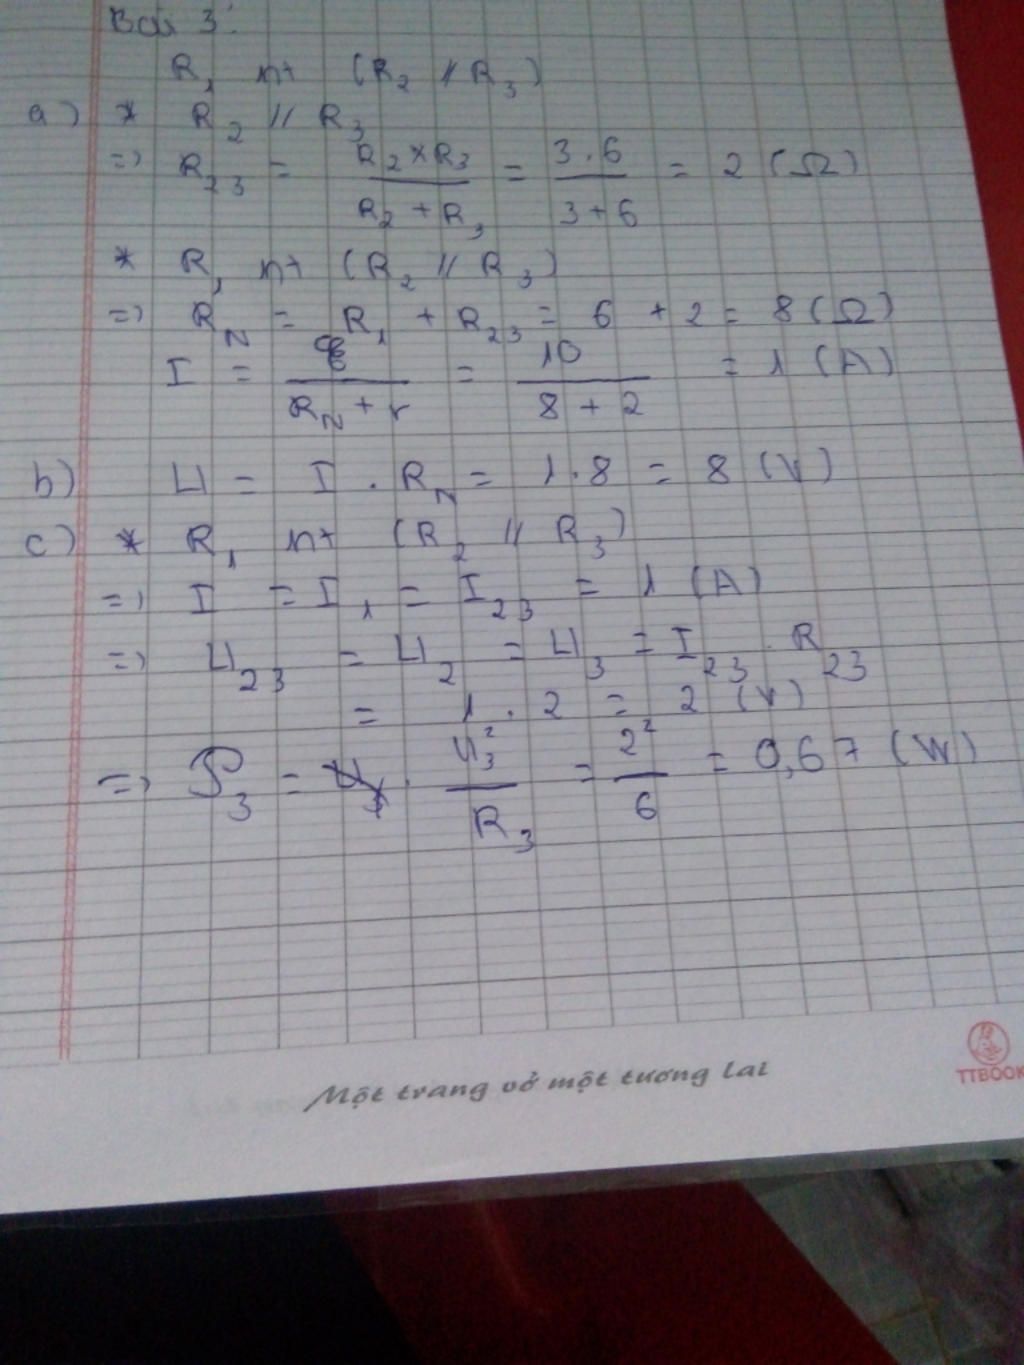 Bài 3:
R₁ nt (R₂ // R₃)
a) * R₂ // R₃
=> R₂₃ = R₂ × R₃ / R₂ + R₃ = 3 . 6 / 3 + 6 = 2 (Ω)
* R₁ nt (R₂ // R₃)
=> R_N = R₁ + R₂₃ = 6 + 2 = 8 (Ω)
I = ξ / R_N + r = 10 / 8 + 2 = 1 (A)
b) U = I . R_N = 1 . 8 = 8 (V)
c) * R₁ nt (R₂ // R₃)
=> I = I₁ = I₂₃ = 1 (A)
=> U₂₃ = U₂ = U₃ = I₂₃ . R₂₃
= 1 . 2 = 2 (V)
=> P₃ = U₃² / R₃ = 2² / 6 = 0,67 (W)
Một trang vở một tương lai
TTBOOK